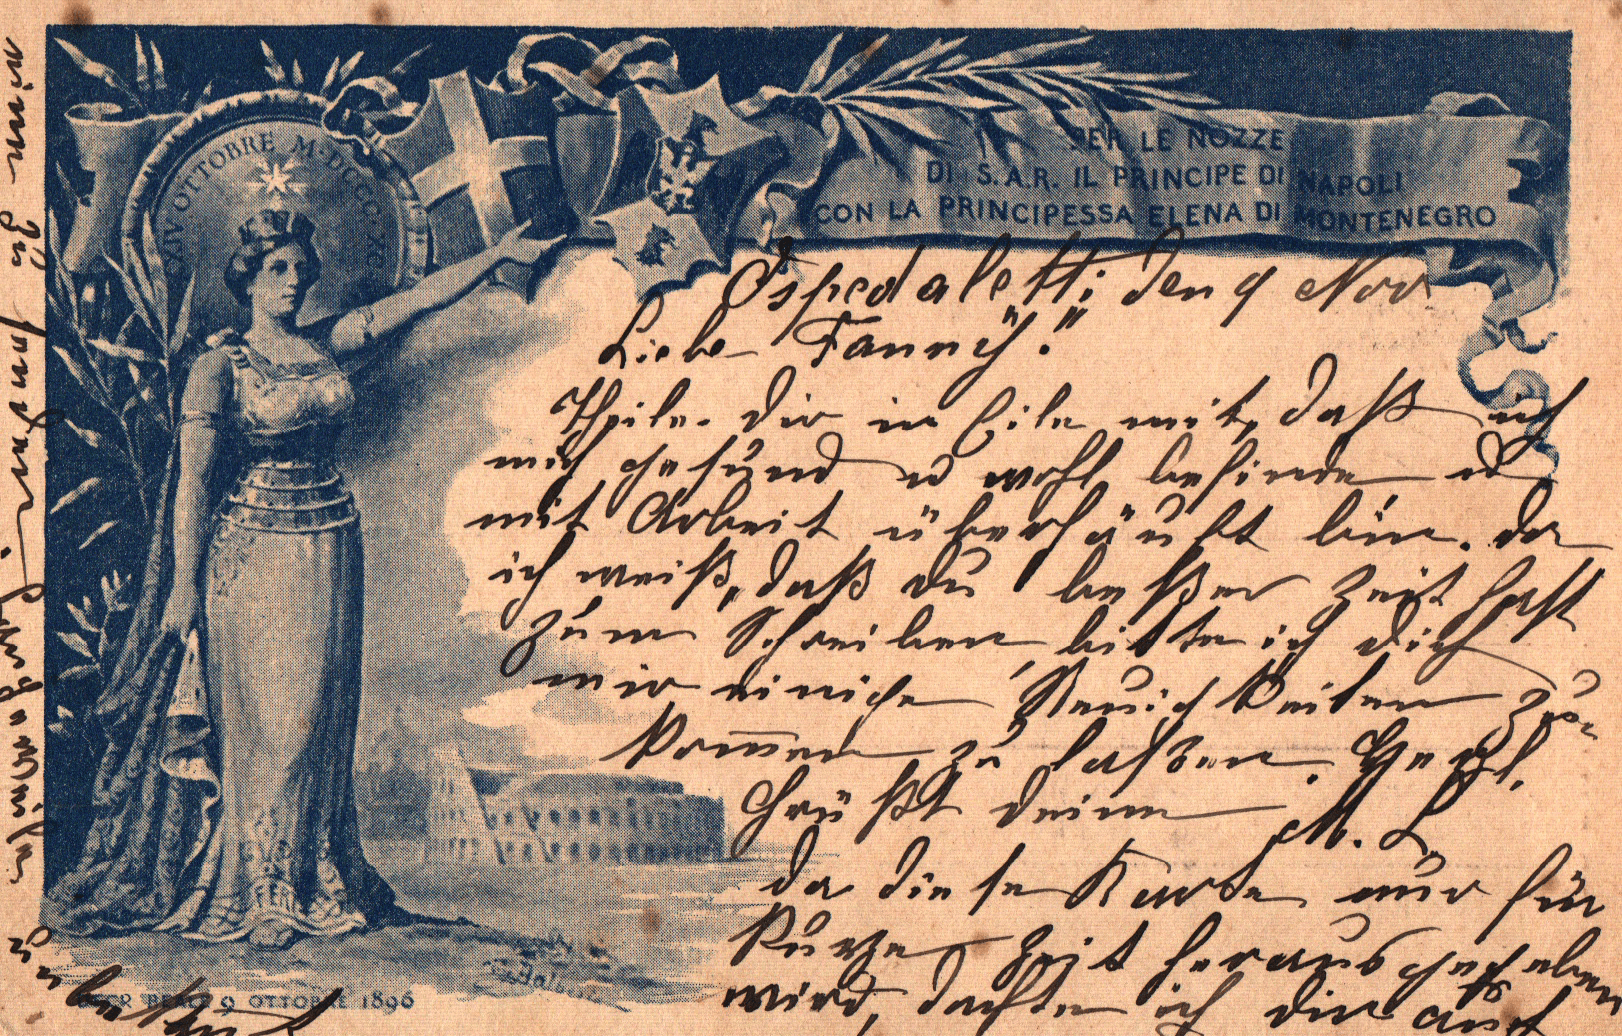 XIV OTTOBRE M·DCCC·XC
PER LE NOZZE
DI S.A.R. IL PRINCIPE DI NAPOLI
CON LA PRINCIPESSA ELENA DI MONTENEGRO
Ospedaletti den 9 Nov
Liebe Fanny!
Theile Dir in Eile mit, daß ich
mich gesund u wohl befinde u
mit Arbeit überhäuft bin. da
ich weiß, daß du beßer Zeit hast
zum Schreiben, bitte ich dich
mir einige Neuigkeiten zu-
kommen zu laßen. Herzl.
Grüßt deine
M. L.
da diese Karte nur für
kurze Zeit herausgegeben
wird, dachte ich dir auch
zu senden.
FERT
9 OTTOBRE 1896